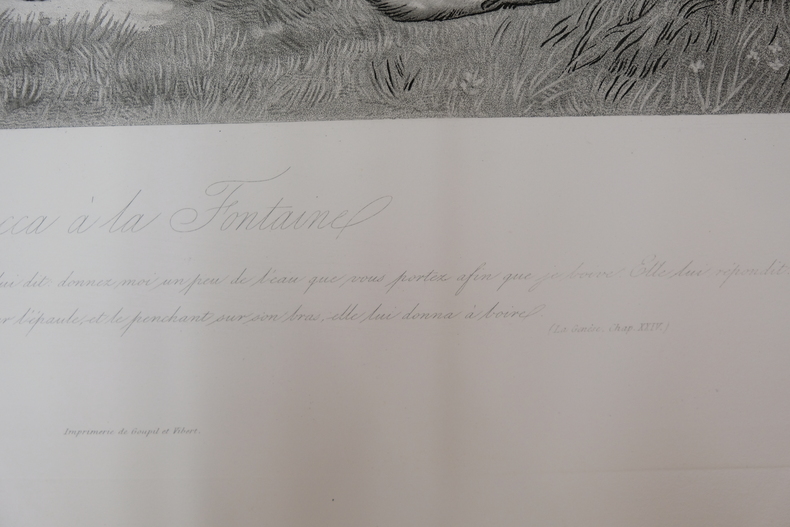 cca à la Fontaine
lui dit: donnez moi un peu de l'eau que vous portez afin que je boive. Elle lui répondit
er l'épaule, et le penchant sur son bras, elle lui donna à boire.
(La Genèse, Chap XXIV.)
Imprimerie de Goupil et Vibert.